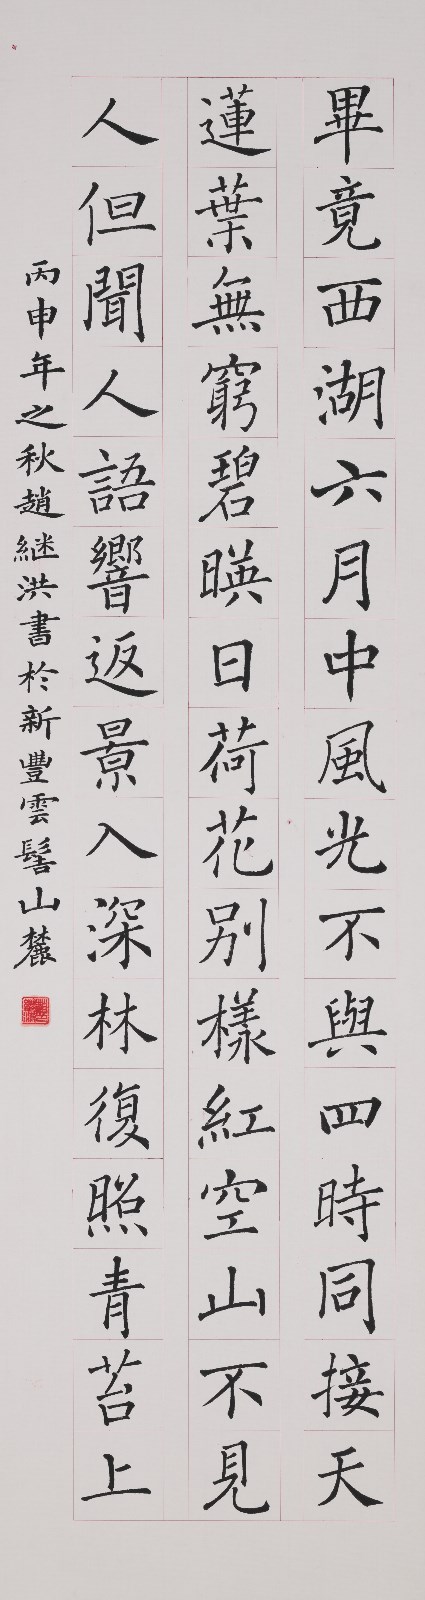 畢竟西湖六月中風光不與四時同接天
蓮葉無窮碧暎日荷花別樣紅空山不見
人但聞人語響返景入深林復照青苔上
丙申年之秋趙継洪書於新豐雲髻山麓